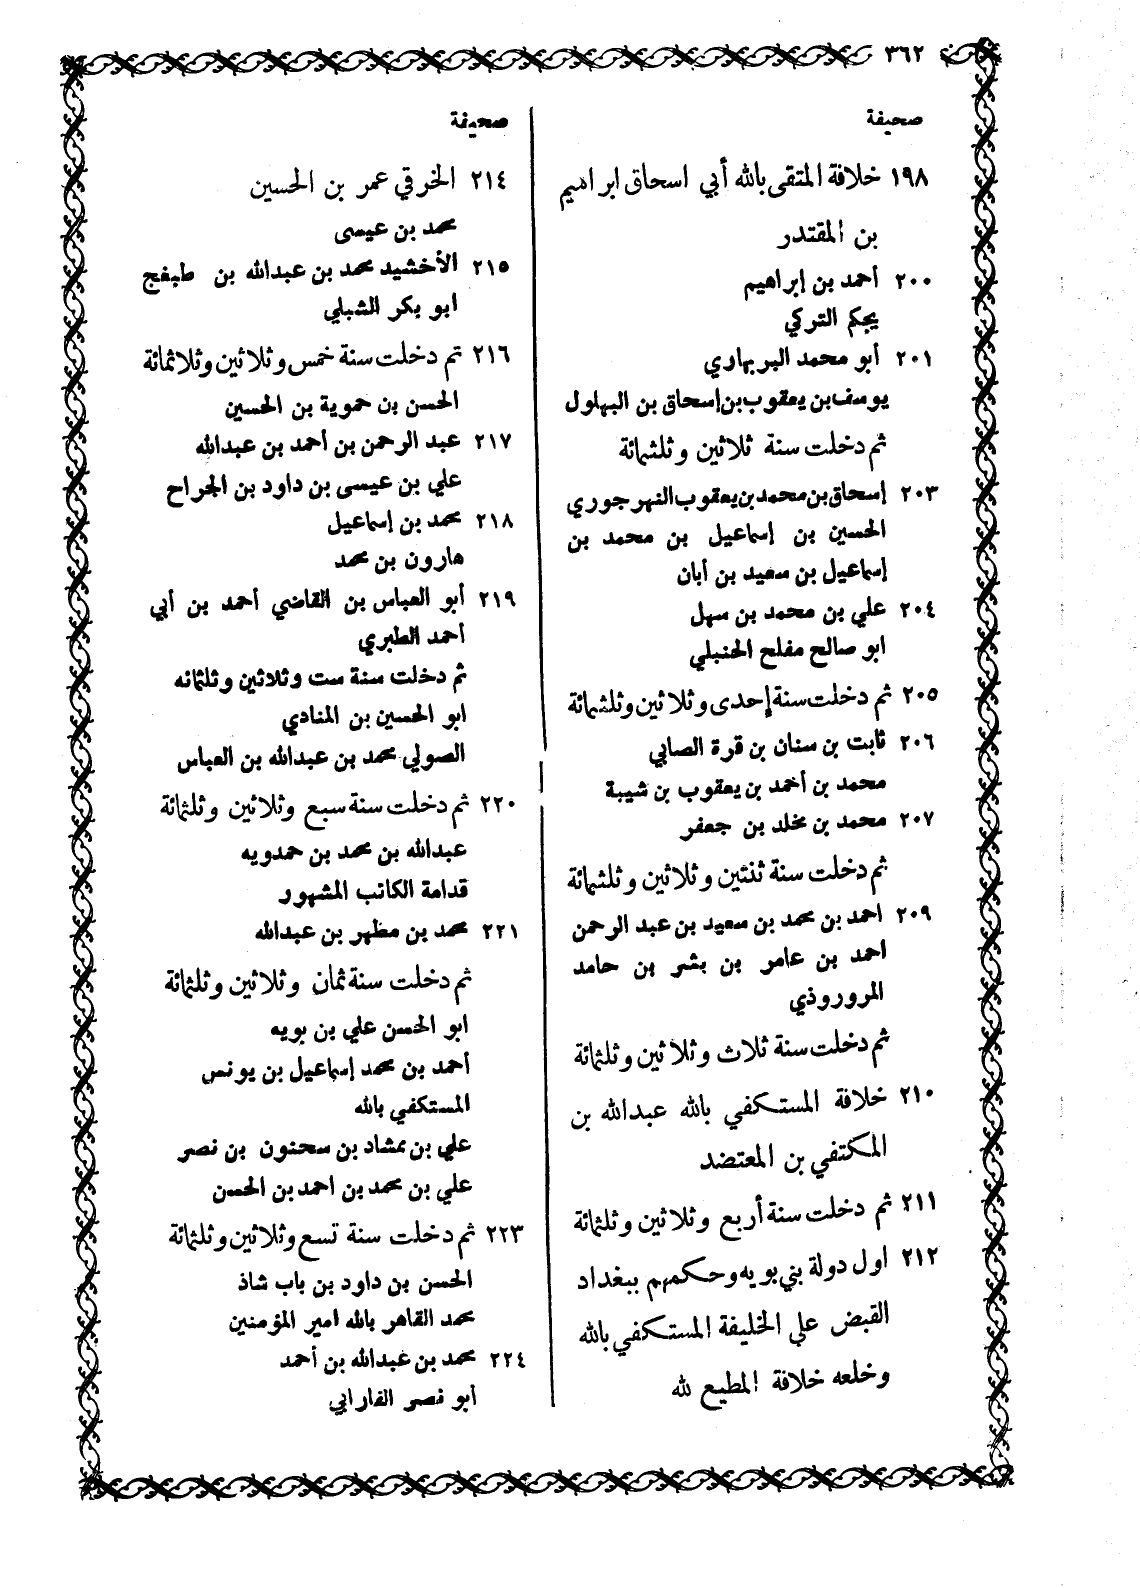 ٣٦٢
صحيفة
١٩٨ خلافة المتقى بالله أبي اسحاق ابراهيم
بن المقتدر
٢٠٠ أحمد بن إبراهيم
يجكم التركي
٢٠١ أبو محمد البربهاري
يوسف بن يعقوب بن إسحاق بن البهلول
ثم دخلت سنة ثلاثين وثلثمائة
٢٠٣ إسحاق بن محمد بن يعقوب النهرجوري
الحسين بن إسماعيل بن محمد بن
إسماعيل بن سعيد بن أبان
٢٠٤ علي بن محمد بن سهل
ابو صالح مفلح الحنبلي
٢٠٥ ثم دخلت سنة إحدى وثلاثين وثلثمائة
٢٠٦ ثابت بن سنان بن قرة الصابي
محمد بن أحمد بن يعقوب بن شيبة
٢٠٧ محمد بن مخلد بن جعفر
ثم دخلت سنة ثنتين وثلاثين وثلثمائة
٢٠٩ احمد بن محمد بن سعيد بن عبد الرحمن
احمد بن عامر بن بشر بن حامد
المروروذي
ثم دخلت سنة ثلاث وثلاثين وثلثمائة
٢١٠ خلافة المستكفي بالله عبدالله بن
المكتفي بن المعتضد
٢١١ ثم دخلت سنة أربع وثلاثين وثلثمائة
٢١٢ اول دولة بني بويه وحكمهم ببغداد
القبض علي الخليفة المستكفي بالله
وخلعه خلافة المطيع لله
صحيفة
٢١٤ الخرقي عمر بن الحسين
محمد بن عيسى
٢١٥ الأخشيد محمد بن عبدالله بن طبغج
ابو بكر الشبلي
٢١٦ ثم دخلت سنة خمس وثلاثين وثلاثمائة
الحسن بن حموية بن الحسين
٢١٧ عبد الرحمن بن أحمد بن عبدالله
علي بن عيسى بن داود بن الجراح
٢١٨ محمد بن إسماعيل
هارون بن محمد
٢١٩ أبو العباس بن القاضي أحمد بن أبي
أحمد الطبري
ثم دخلت سنة ست وثلاثين وثلثمائه
ابو الحسين بن المنادي
الصولي محمد بن عبدالله بن العباس
٢٢٠ ثم دخلت سنة سبع وثلاثين وثلثمائة
عبدالله بن محمد بن حمدويه
قدامة الكاتب المشهور
٢٢١ محمد بن مطهر بن عبدالله
ثم دخلت سنة ثمان وثلاثين وثلثمائة
ابو الحسن علي بن بويه
أحمد بن محمد إسماعيل بن يونس
المستكفي بالله
علي بن ممشاد بن سحنون بن نصر
علي بن محمد بن احمد بن الحسن
٢٢٣ ثم دخلت سنة تسع وثلاثين وثلثمائة
الحسن بن داود بن باب شاذ
محمد القاهر بالله امير المؤمنين
٢٢٤ محمد بن عبدالله بن أحمد
أبو نصر الفارابي